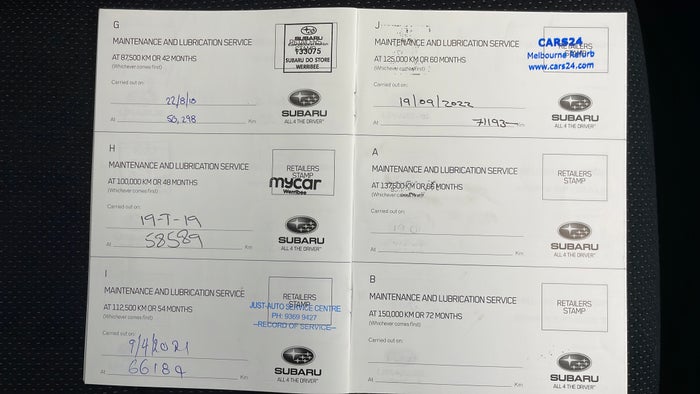 G
MAINTENANCE AND LUBRICATION SERVICE
AT 87,500 KM OR 42 MONTHS
(Whichever comes first)
Carried out on:
22/8/18
At 50,298 Km
SUBARU
133075
SUBARU DO STORE
WERRIBEE
SUBARU
ALL 4 THE DRIVER™
H
MAINTENANCE AND LUBRICATION SERVICE
AT 100,000 KM OR 48 MONTHS
(Whichever comes first)
Carried out on:
19-7-19
At 58589 Km
RETAILERS
STAMP
mycar
Werribee
SUBARU
ALL 4 THE DRIVER™
I
MAINTENANCE AND LUBRICATION SERVICE
AT 112,500 KM OR 54 MONTHS
(Whichever comes first)
Carried out on:
9/4/2021
At 66184 Km
RETAILERS
STAMP
JUST-AUTO SERVICE CENTRE
PH: 9369 9427
—RECORD OF SERVICE—
SUBARU
ALL 4 THE DRIVER™
J
MAINTENANCE AND LUBRICATION SERVICE
AT 125,000 KM OR 60 MONTHS
(Whichever comes first)
Carried out on:
19/09/2022
At 71193 Km
RETAILERS
STAMP
CARS24
Melbourne Refurb
www.cars24.com
SUBARU
ALL 4 THE DRIVER™
A
MAINTENANCE AND LUBRICATION SERVICE
AT 137,500 KM OR 66 MONTHS
(Whichever comes first)
Carried out on:
At Km
RETAILERS
STAMP
SUBARU
ALL 4 THE DRIVER™
B
MAINTENANCE AND LUBRICATION SERVICE
AT 150,000 KM OR 72 MONTHS
(Whichever comes first)
Carried out on:
At Km
RETAILERS
STAMP
SUBARU
ALL 4 THE DRIVER™